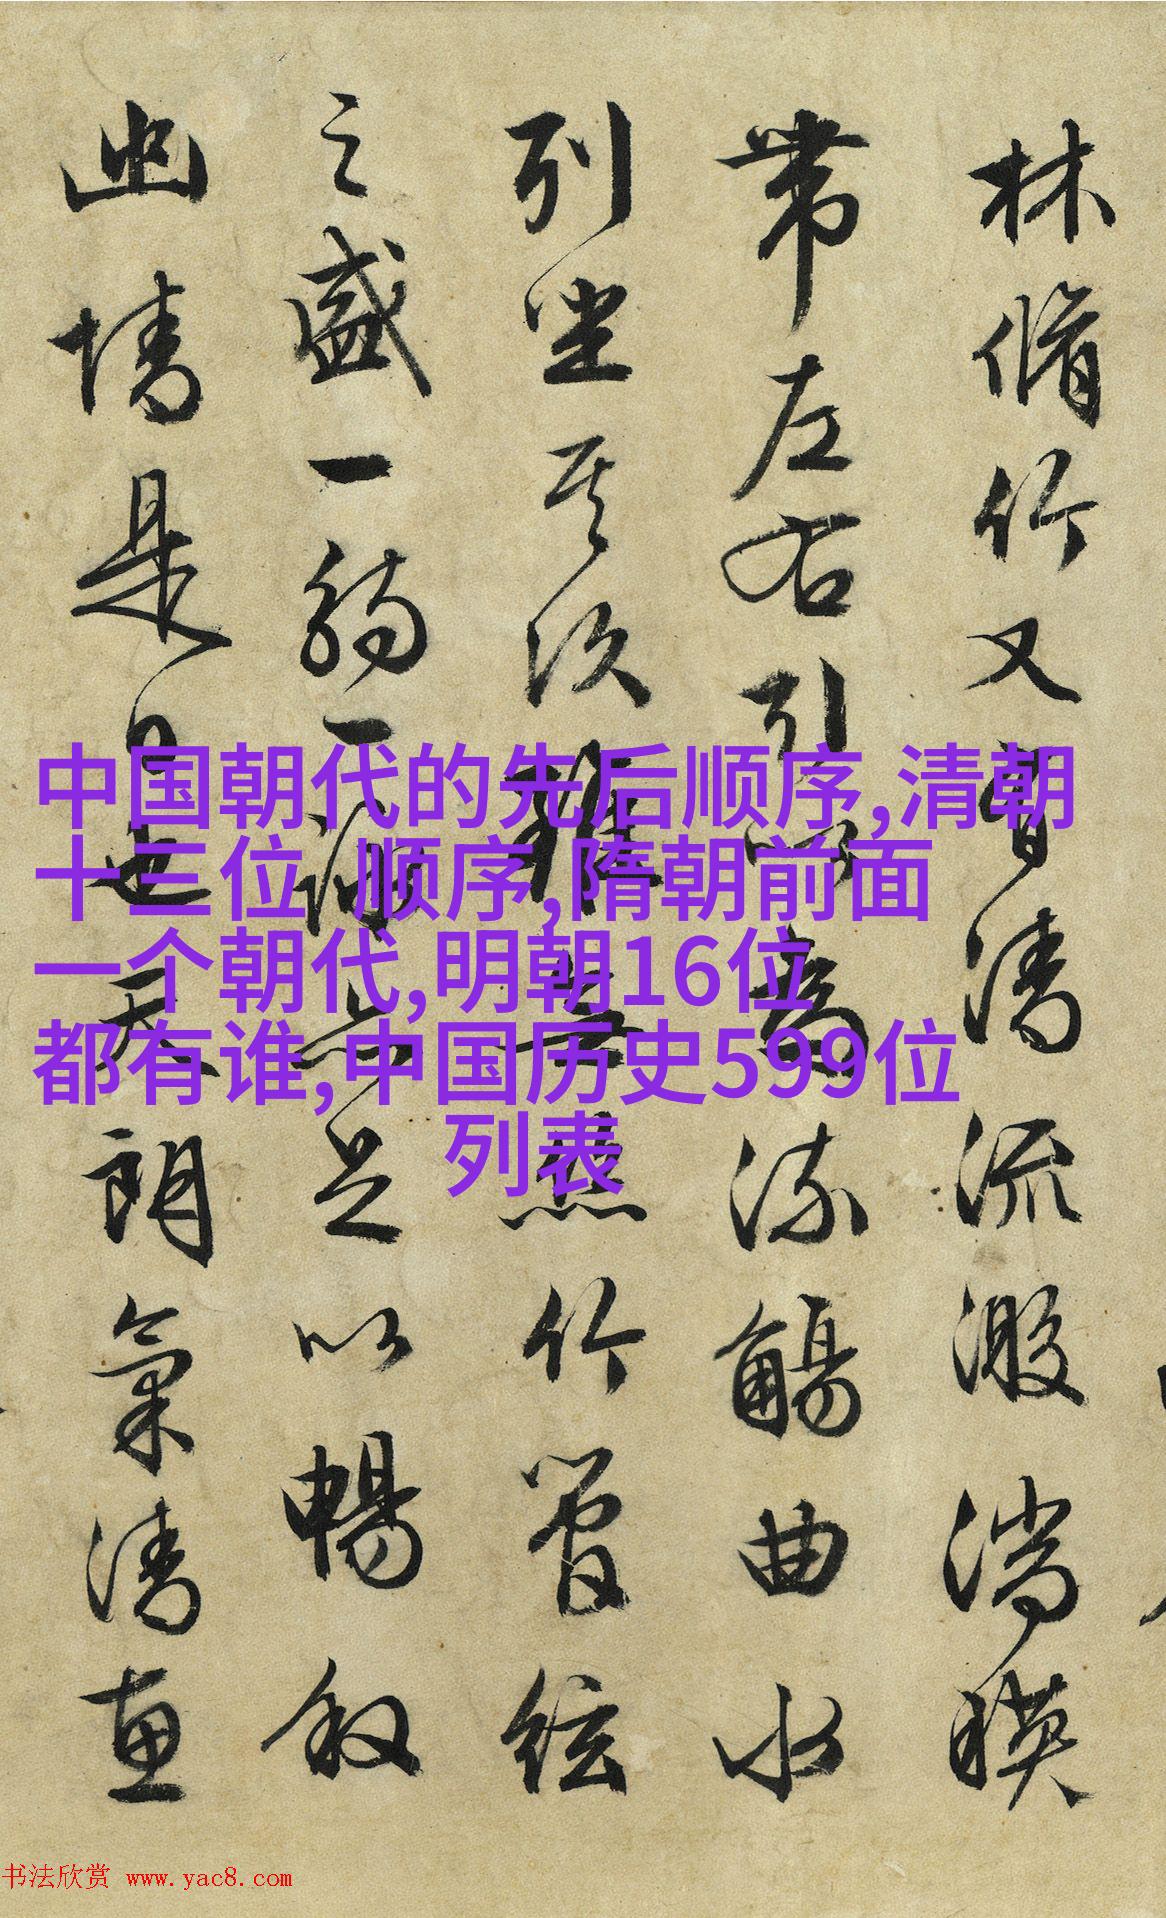 林脩竹又有清流激湍暎
帶左右引以為流觴曲水
列坐其次雖無絲竹管絃
之盛一觴一詠亦足以暢敘
幽情是日也天朗氣清惠
中国朝代的先后顺序,清朝
十三位 顺序,隋朝前面
一个朝代,明朝16位
都有谁,中国历史599位
列表
书法欣赏 www.yac8.com